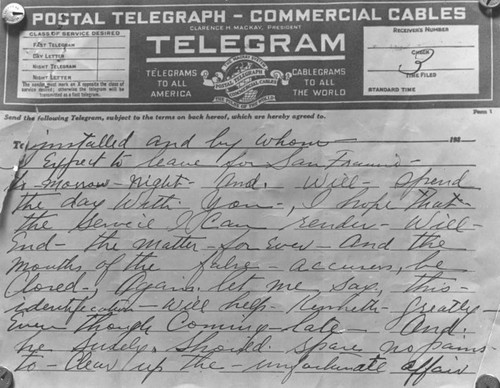 POSTAL TELEGRAPH - COMMERCIAL CABLES
CLARENCE H. MACKAY, PRESIDENT
CLASS OF SERVICE DESIRED
FAST TELEGRAM
DAY LETTER
NIGHT TELEGRAM
NIGHT LETTER
The sender must mark an X opposite the class of service desired; otherwise the telegram will be transmitted as a fast telegram.
TELEGRAM
TELEGRAMS TO ALL AMERICA
THE MACKAY SYSTEM
POSTAL TELEGRAPH
CABLEGRAMS TO ALL THE WORLD
RECEIVER'S NUMBER
CHECK
TIME FILED
STANDARD TIME
Send the following Telegram, subject to the terms on back hereof, which are hereby agreed to.
Form 1
To installed and by whom 192
I Expect to leave for San Francis-
to-morrow-night-And. Will-spend
the day With-You-, I hope that-
the Service I Can render-Will-
End-the Matter-for Ever-And the
Mouths of the false-accusers, be
Closed-. Again let me say, this-
identification-Will help-Kenneth-Greatly-
Even though Coming-late-And.
he surely. Should. spare no pains-
to-Clear up the-unfortunate affair